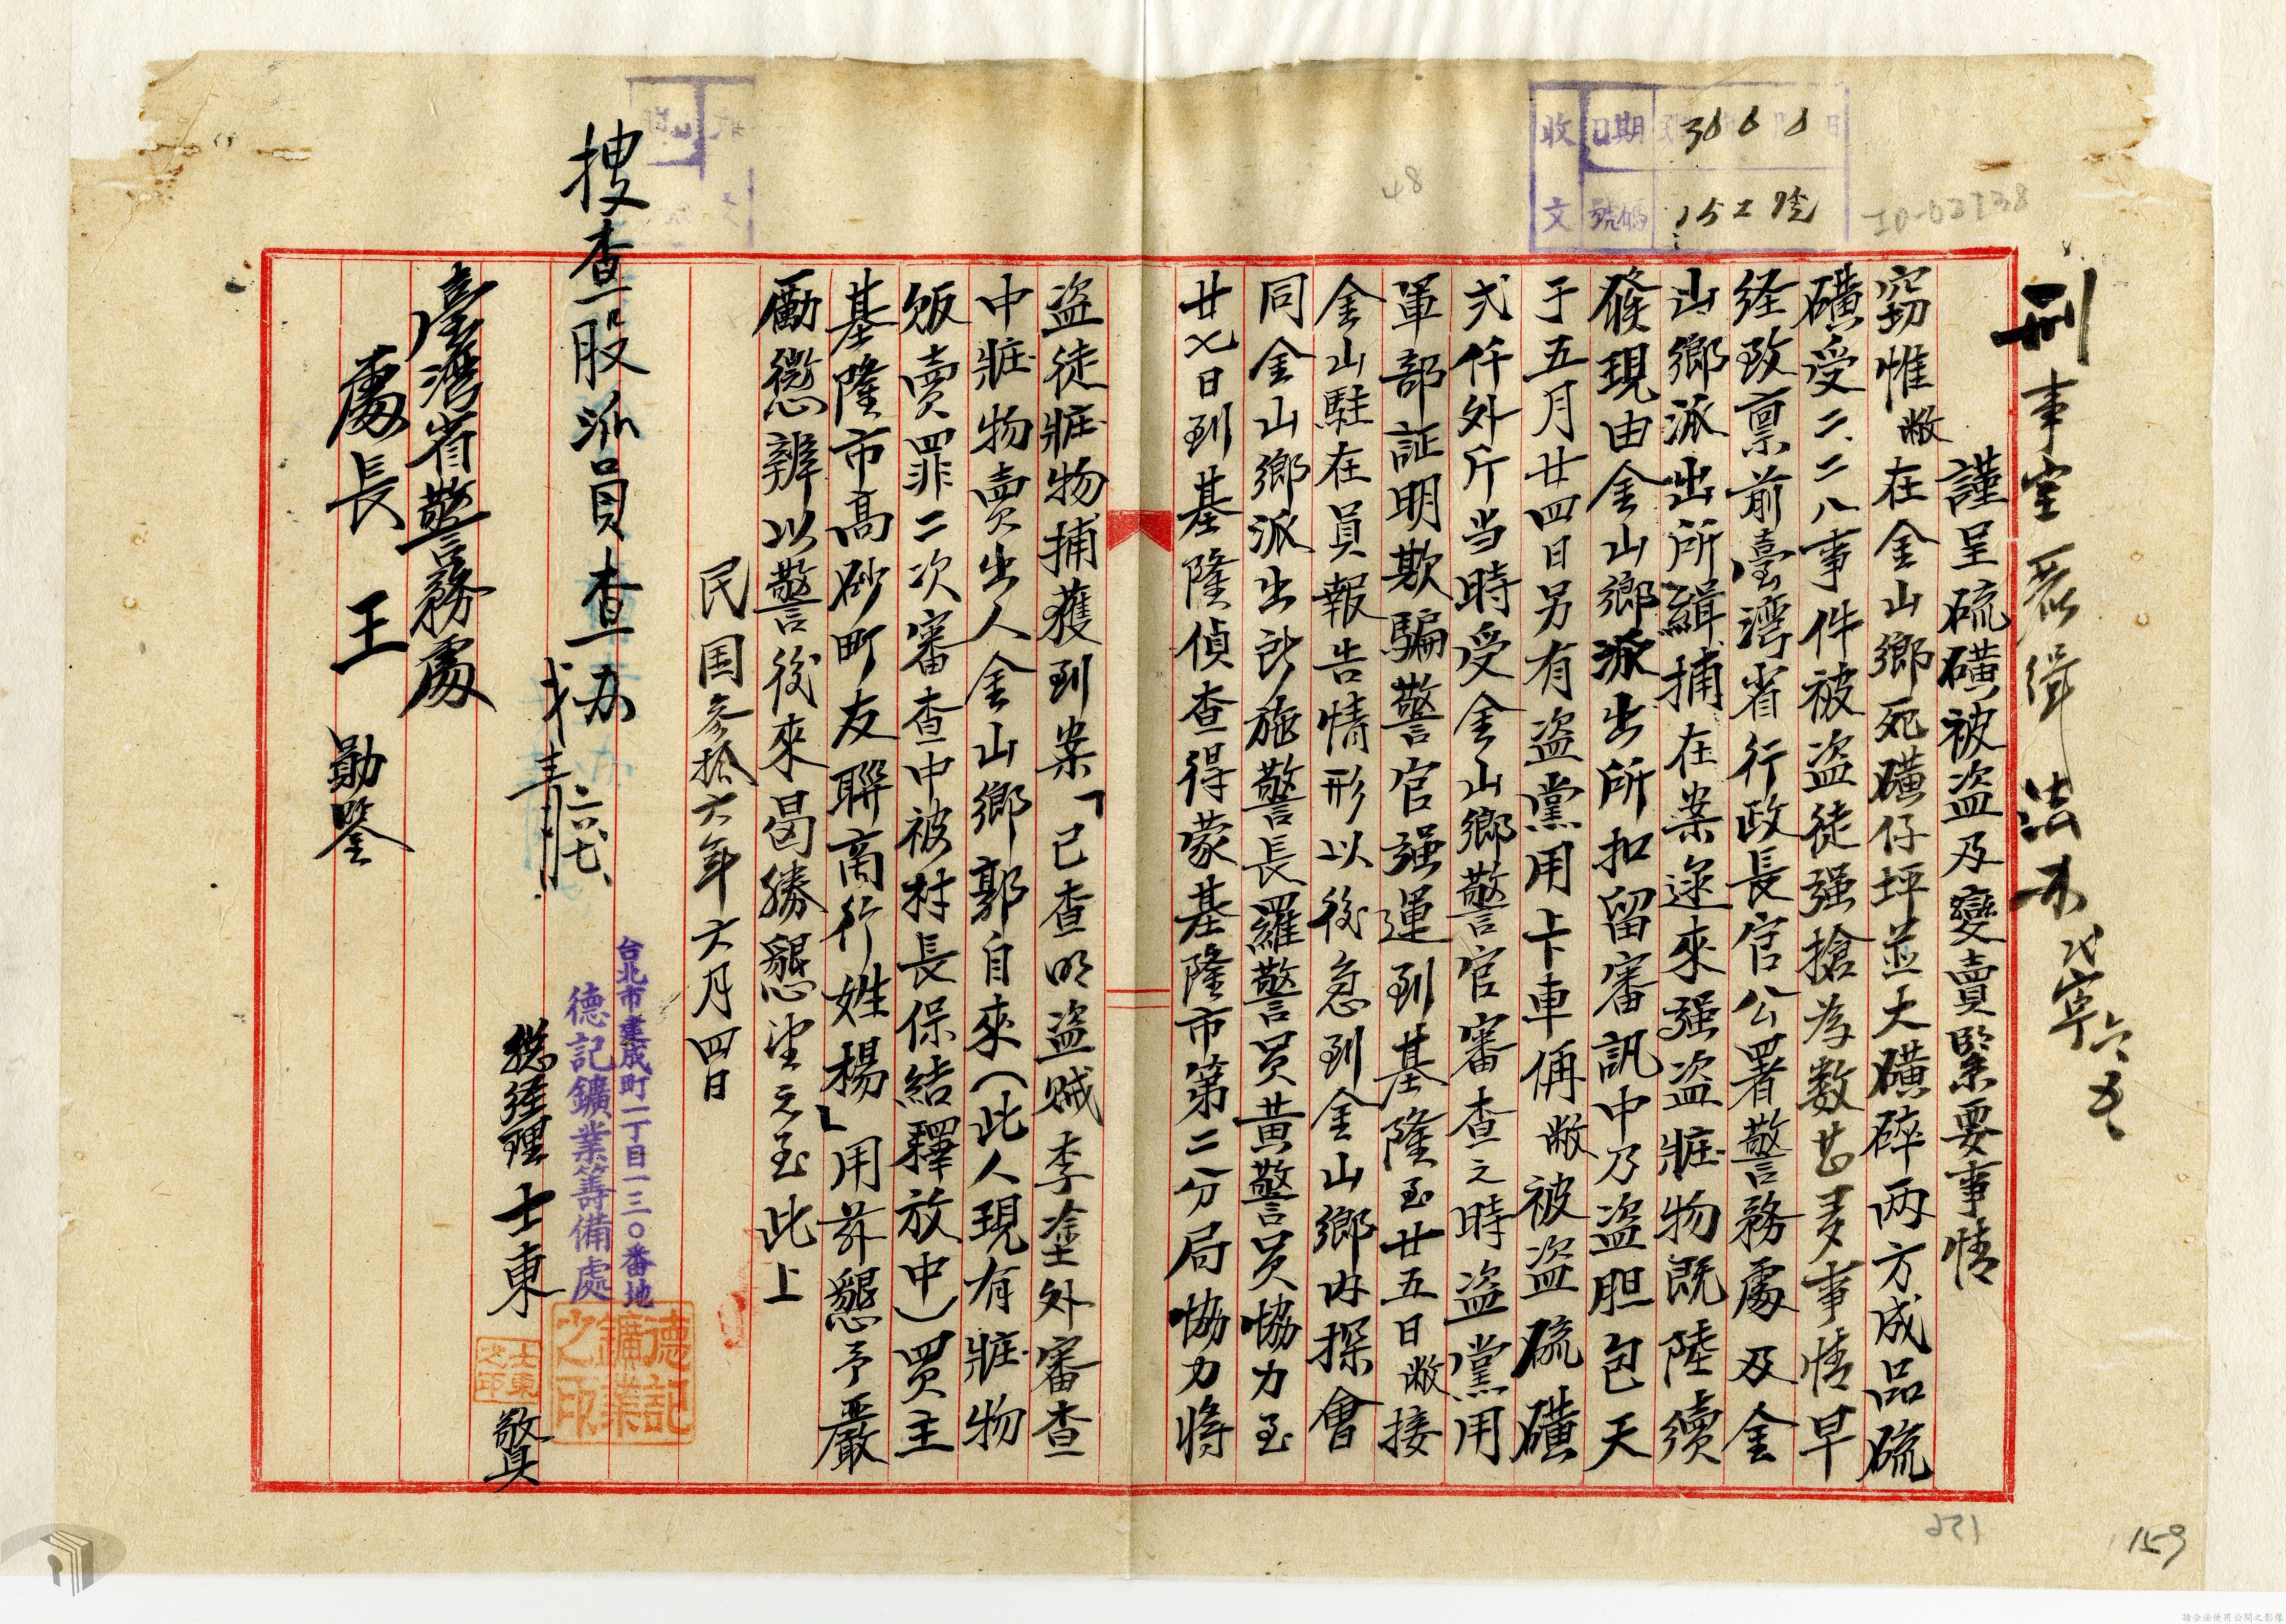 收文
日期 36 6 6
號碼 152號
48
ID-02738
刑事室
法
謹呈硫磺被盗及變賣緊要事情
窃惟敝在金山鄉死磺仔坪並大磺碎两方成品硫
磺受二、二八事件被盗徒强搶為数甚多事情早
経致禀前臺湾省行政長官公署警務處及金
山鄉派出所緝捕在案逐來强盗賍物既陸續
發現由金山鄉派出所扣留審訊中乃盗胆包天
于五月廿四日另有盗黨用卡車偁敝被盗硫磺
弍仟外斤当時受金山鄉警官審查之時盗黨用
軍部証明欺騙警官强運到基隆至廿五日敝接
金山駐在員報告情形以後急到金山鄉内探會
同金山鄉派出所施警長羅警員黃警員協力至
廿七日到基隆偵查得蒙基隆市第二分局協力將
盗徒賍物捕獲到案「已查明盗贼李塗外審查
中賍物賣出人金山鄉郭自來(此人現有賍物
販賣罪二次審查中被村長保結釋放中)買主
基隆市高砂町友聯商行姓楊」用茲懇予嚴
勵懲辨以警後來曷勝懇望之至此上
民国参拾六年六月四日
台北市建成町一丁目一三〇番地
德記鑛業籌備處
總経理 士東 謹具
德記鑛業之印
士東之印
搜查股派員查办
臺灣省警務處
處長 王 勛鑒
159
請合法使用公開之影像